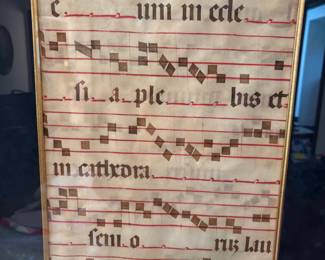 e um in ecle
si a ple bis et
in cathedra
seni o rũ lau